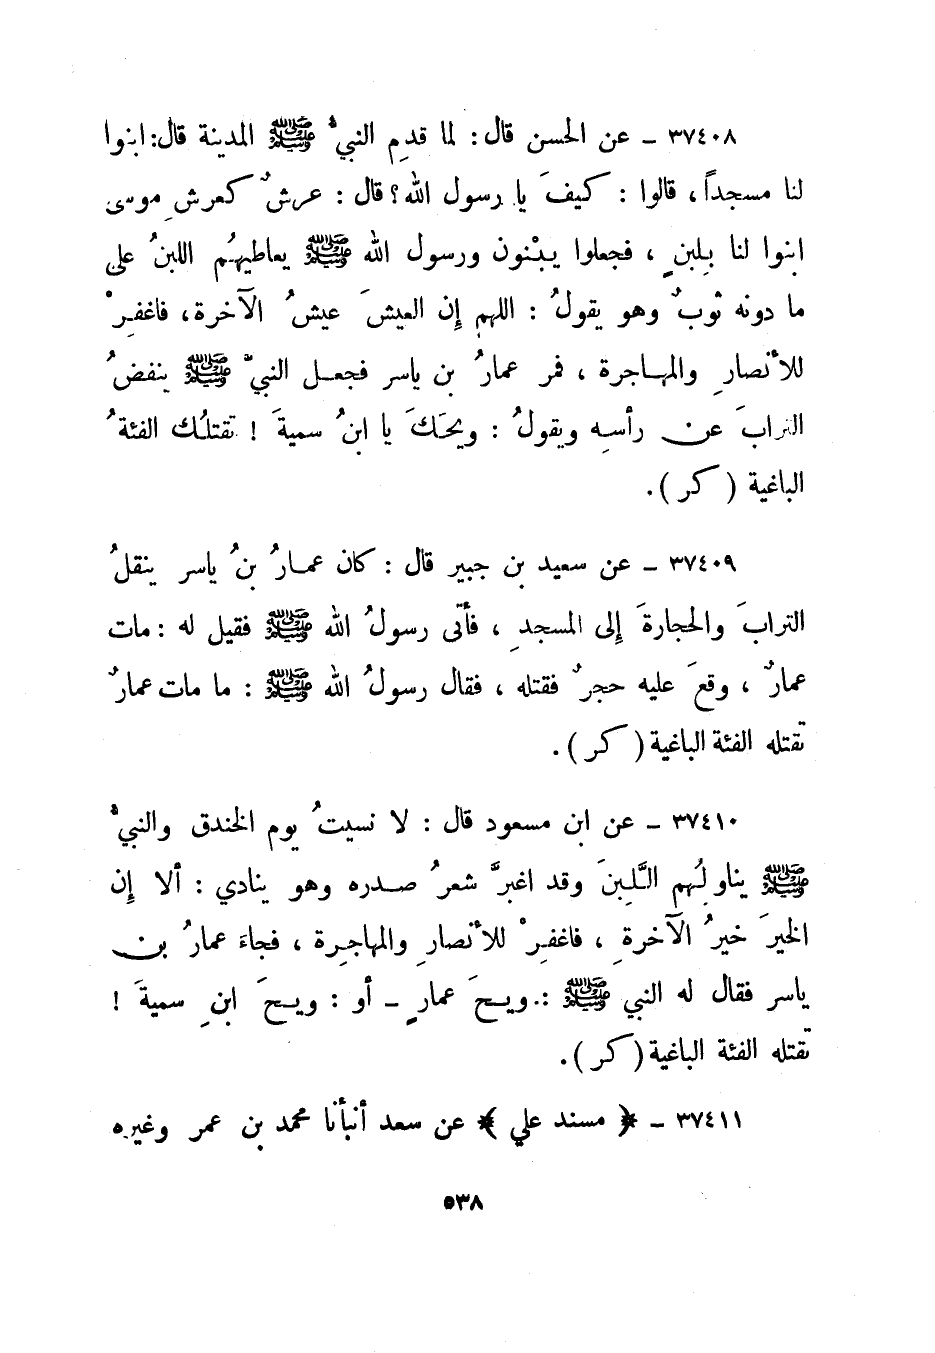 ٣٧٤٠٨ ـ عن الحسن قال : لما قدِم النبيُّ ﷺ المدينة قال: ابنوا
لنا مسجداً ، قالوا : كيفَ يا رسول الله؟ قال : عرشٌ كعرشِ موسى
ابنوا لنا بِلبنٍ ، فجعلوا يبْنون ورسول الله ﷺ يعاطيهُم اللبنُ على
ما دونه ثوبٌ وهو يقولُ : اللهم إن العيشَ عيشُ الآخرة، فاغفِرْ
للأنصارِ والمهاجرة ، فمر عمارُ بن ياسر فجعل النبيُّ ﷺ ينفضُ
الترابَ عن رأسِه ويقولُ : ويحَكَ يا ابنُ سميةَ ! تقتلُك الفئةُ
الباغية ( كر ) .
٣٧٤٠٩ ـ عن سعيد بن جبير قال : كان عمارُ بنُ ياسر ينقلُ
الترابَ والحجارةَ إلى المسجدِ ، فأتى رسولُ الله ﷺ فقيل له : مات
عمارٌ ، وقعَ عليه حجرٌ فقتله ، فقال رسولُ الله ﷺ : ما مات عمارٌ
تقتله الفئة الباغية ( كر ) .
٣٧٤١٠ ـ عن ابن مسعود قال : لا نسيتُ يوم الخندق والنبيُّ
ﷺ يناولُهم اللَّبِنَ وقد اغبرَّ شعرُ صدره وهو ينادي : ألا إن
الخيرَ خيرُ الآخرةِ ، فاغفِرْ للأنصارِ والمهاجِرة ، فجاءَ عمارُ بن
ياسر فقال له النبي ﷺ : ويحَ عمارٍ ـ أو : ويحَ ابنِ سميةَ !
تقتله الفئة الباغية ( كر ) .
٣٧٤١١ ـ ﴿ مسند علي ﴾ عن سعد أنبأنا محمد بن عمر وغيره
٥٣٨